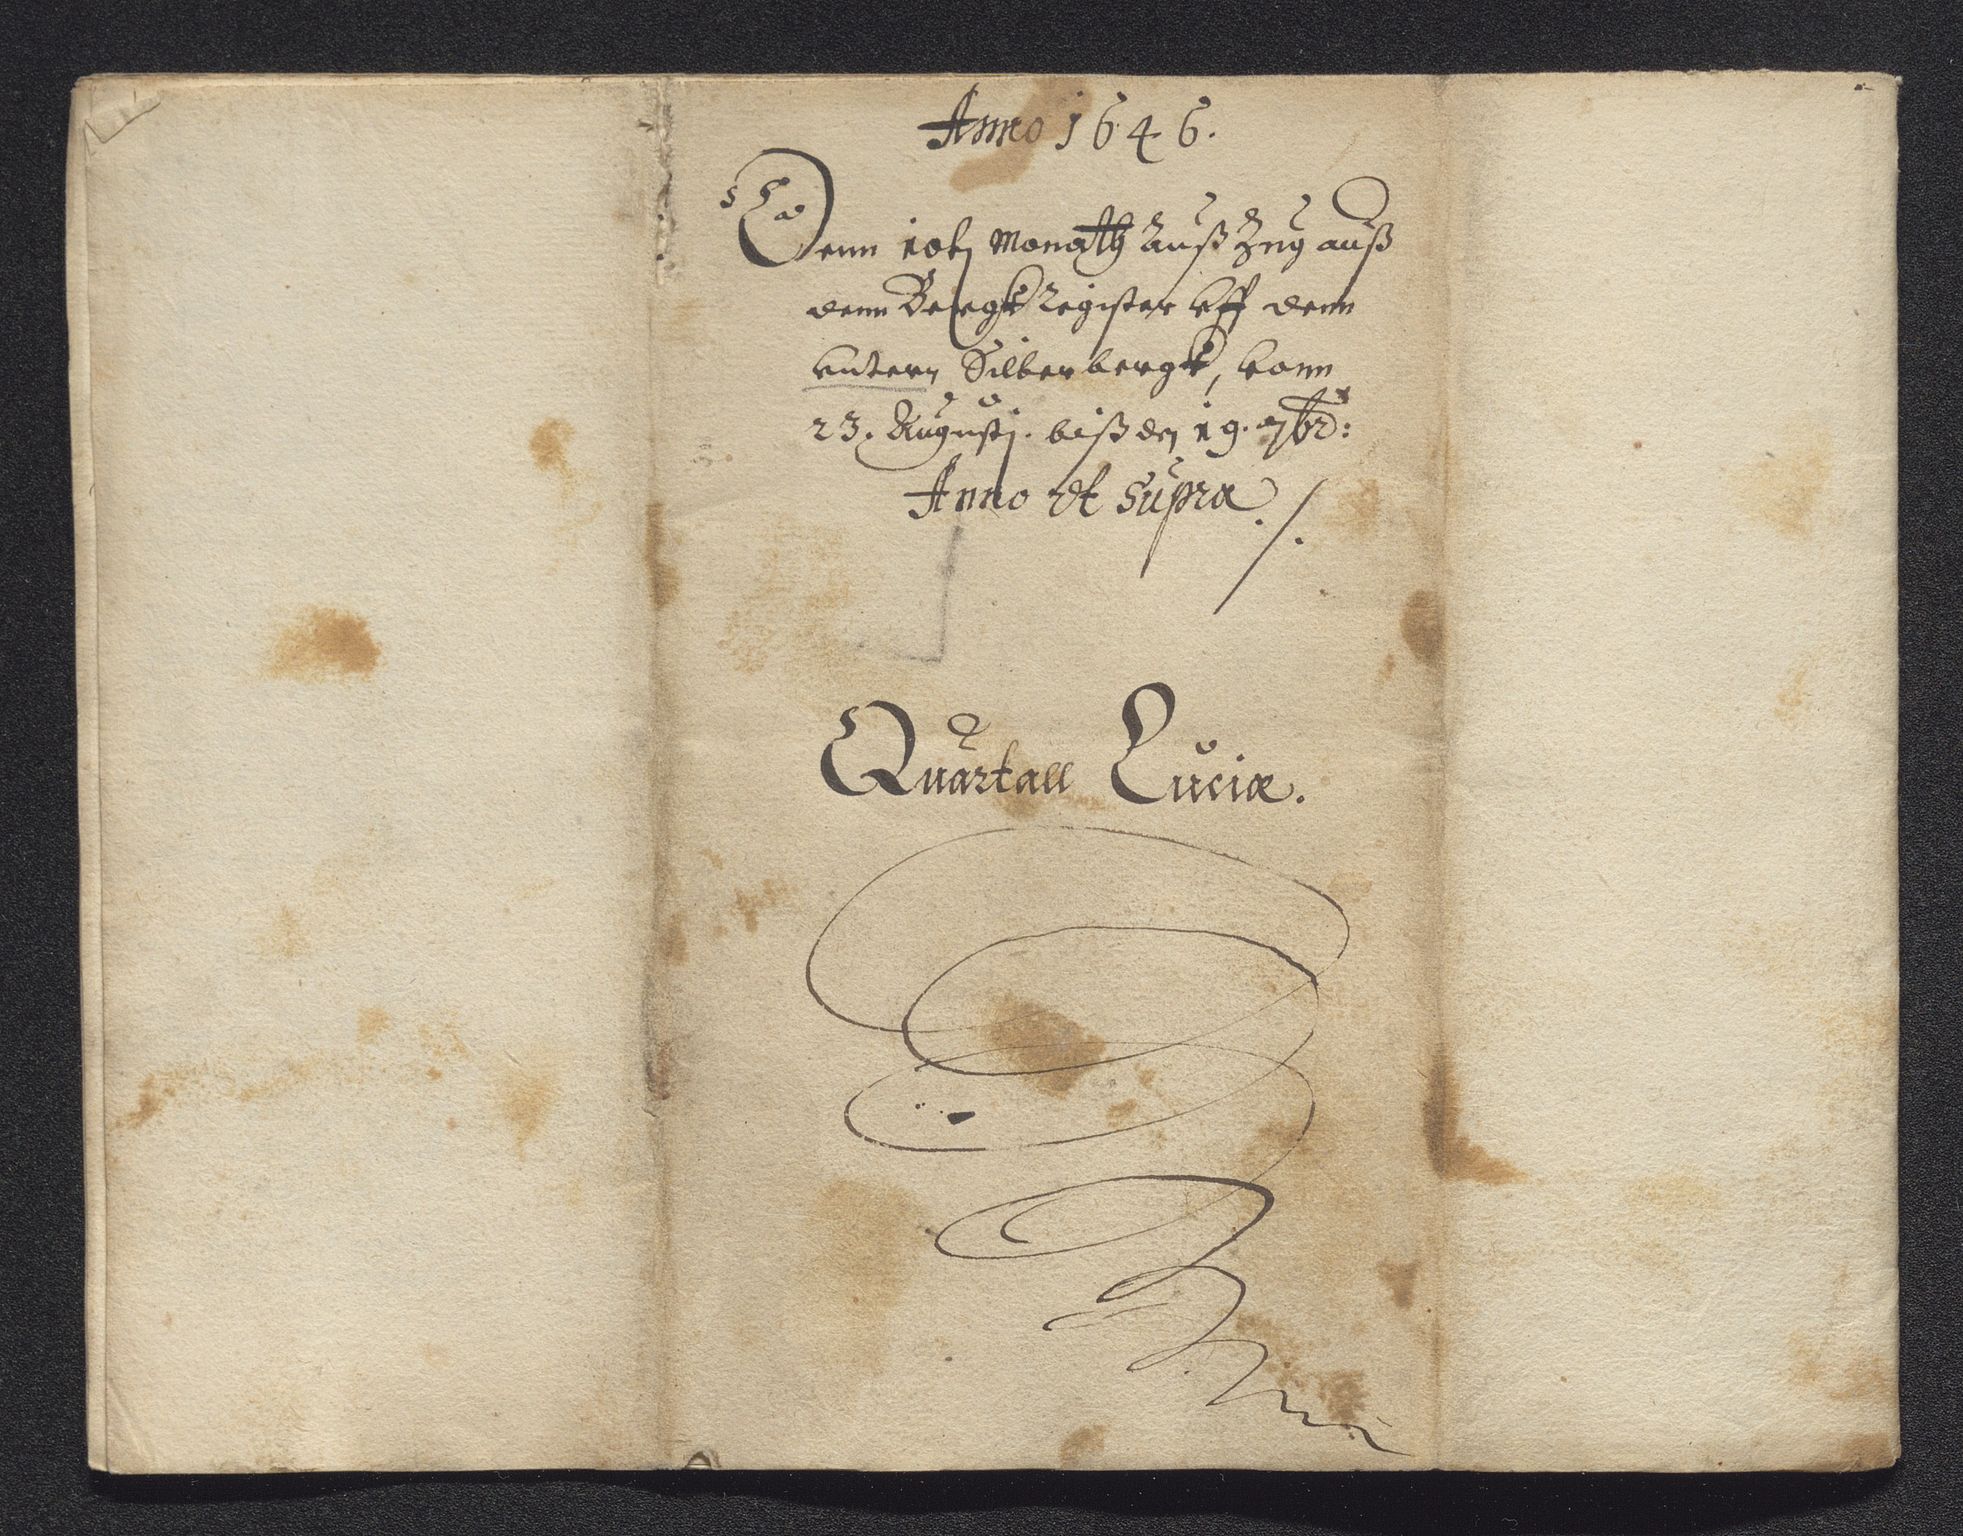 Anno 1646.
Denn 10t Monath Auß Zug auß
denn Bergk Register vff denn
vntern Silberbergk, vonn
23. Augustj. biß den 19. 7br:
Anno et Supra ./.
Quartall Luciæ.